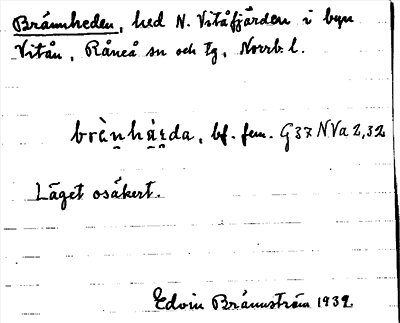 Brännheden, hed N. Vitåfjärden i byn
Vitån, Råneå sn och tg, Norrb. l.
brä̀nhä̀rda, bf. fem. G37 NVa 2,32
Läget osäkert.
Edvin Brännström 1932